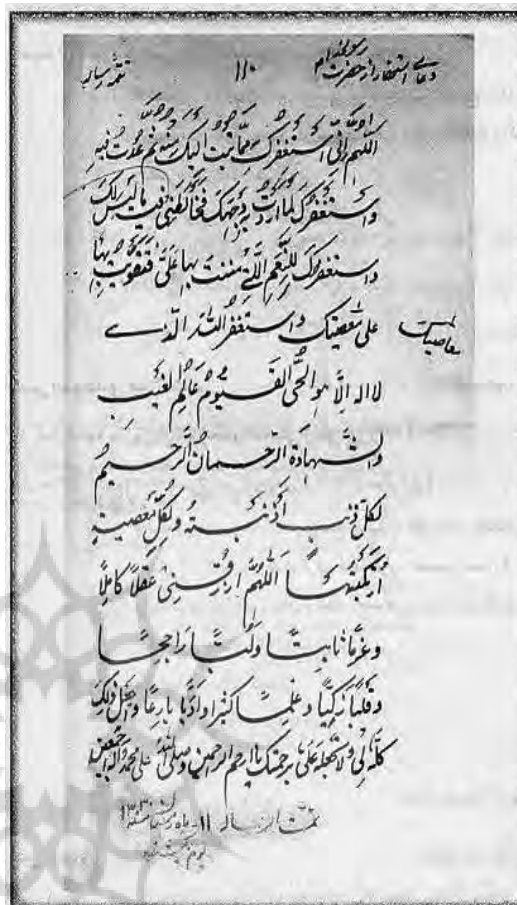 دعای استغفار از حضرت رسول خدا
١١٠
تتمه رساله
اللّهُمَّ اِنّی اَستَغفِرُکَ مِمّا تُبتُ اِلَیکَ مِنهُ ثُمَّ عُدتُ فیهِ
وَ اَستَغفِرُکَ لِما اَرَدتُ بِهِ وَجهَکَ فَخالَطَنی فیهِ ما لَیسَ لَکَ
وَ استَغفِرُکَ لِلنِّعَمِ الَّتی مَنَنتَ بِها عَلَیَّ فَتَقَوَّیتُ بِها
علی مَعصیتک و استَغفِرُ اللهَ الّذی
لا اله اِلّا هو الحَیُّ القَیّومُ عالِمُ الغَیبِ
وَ الشَّهادَةِ الرَّحمانُ الرَّحیمُ
لِکُلِّ ذنبٍ اَذنَبتُهُ وَ لِکُلِّ مَعصیتٍ
ارتَکَبتُها اَللّهُمَّ ارزُقنی عَقلًا کامِلًا
وَ عَزمًا ثابِتًا وَ لُبًّا راجِحًا
وَ قَلبًا زَکِیًّا وَ عِلمًا کثیرًا وَ اَدَبًا بارِعًا وَ اجعَل ذلِکَ
کُلَّهُ لی وَ لا تَجعَلهُ عَلَیَّ بِرَحمَتِکَ یا ارحم الراحمین و صلی الله علی محمد و آله اجمعین
تمت الرساله ١١